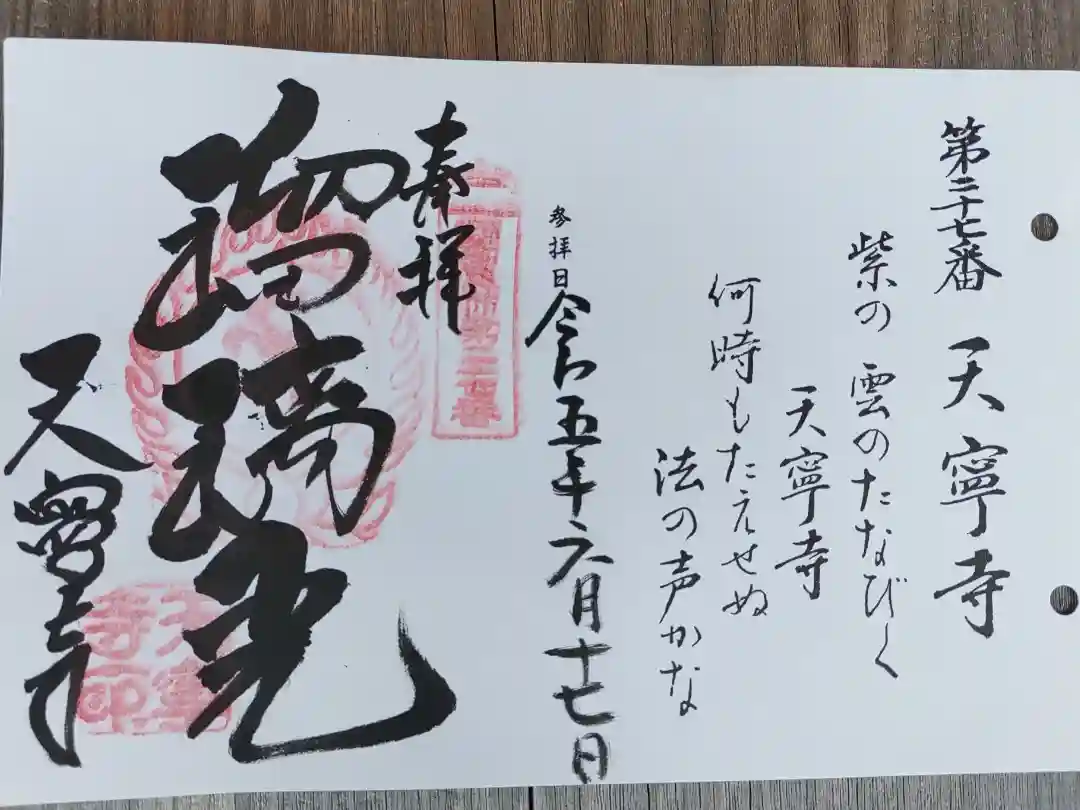 第二十七番 天寧寺
紫の雲のたなびく
天寧寺
何時もたえせぬ
法の声かな
参拝日 令和五年六月十七日
奉拝
瑠璃光
天寧寺
天寧寺印